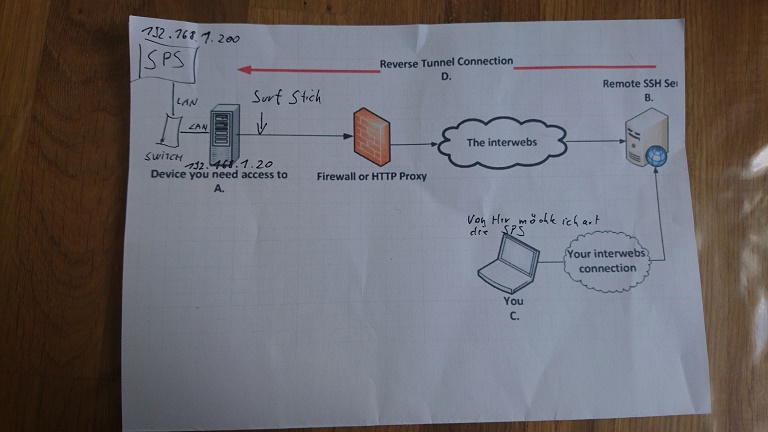 192.168.1.200
SPS
Reverse Tunnel Connection
D.
Remote SSH Se
B.
LAN
LAN
Surf Stich
SWITCH
192.168.1.20
The interwebs
Device you need access to
A.
Firewall or HTTP Proxy
Von Hir möchte ich auf
die SPS
Your interwebs
connection
You
C.